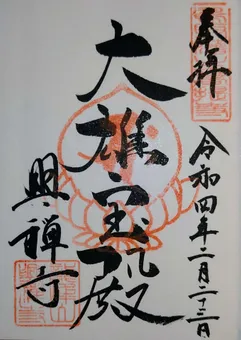 奉拝
令和四年一月二十三日
大雄宝殿
興禅寺